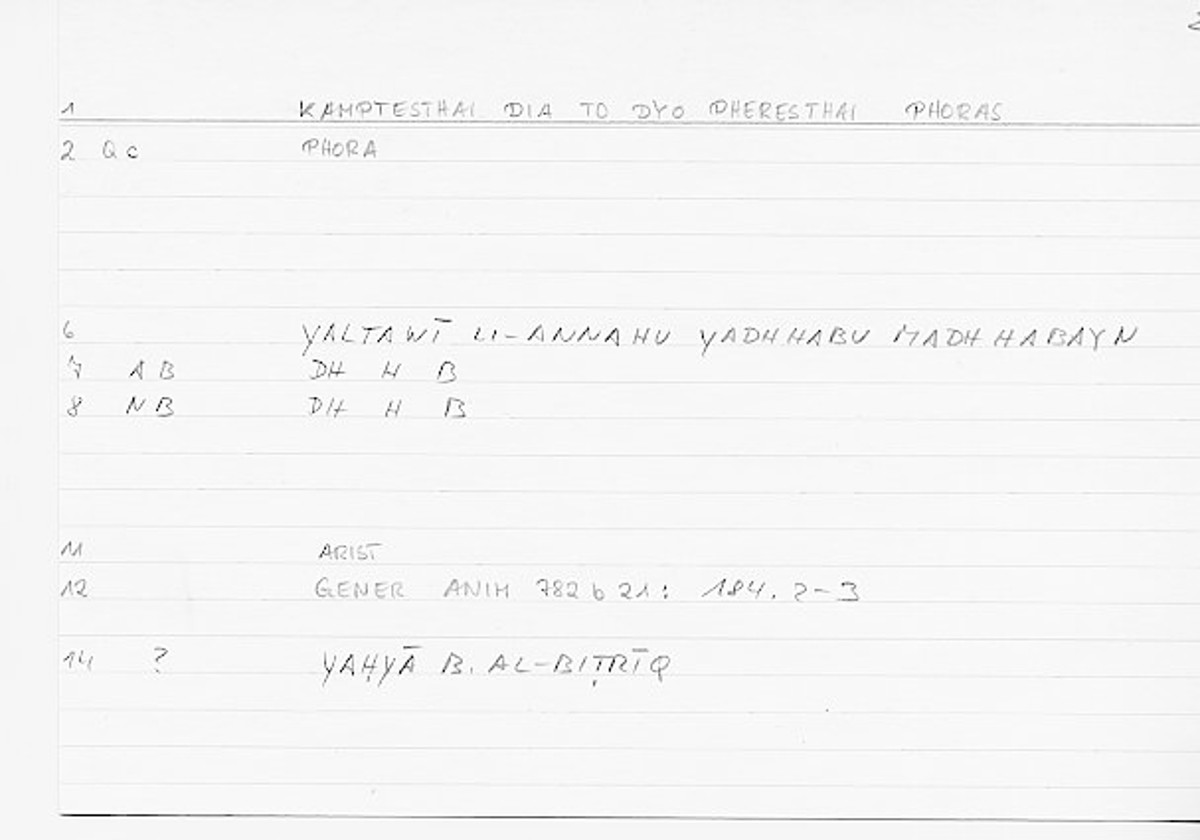 1 KAMPTESTHAI DIA TO DYO PHERESTHAI PHORAS
2 Qc PHORA
6 YALTAWĪ LI-ANNAHU YADHHABU MADHHABAYN
7 AB DH H B
8 NB DH H B
11 ARIST
12 GENER ANIM 782b21: 184.2-3
14 ? YAḤYĀ B. AL-BIṬRĪQ